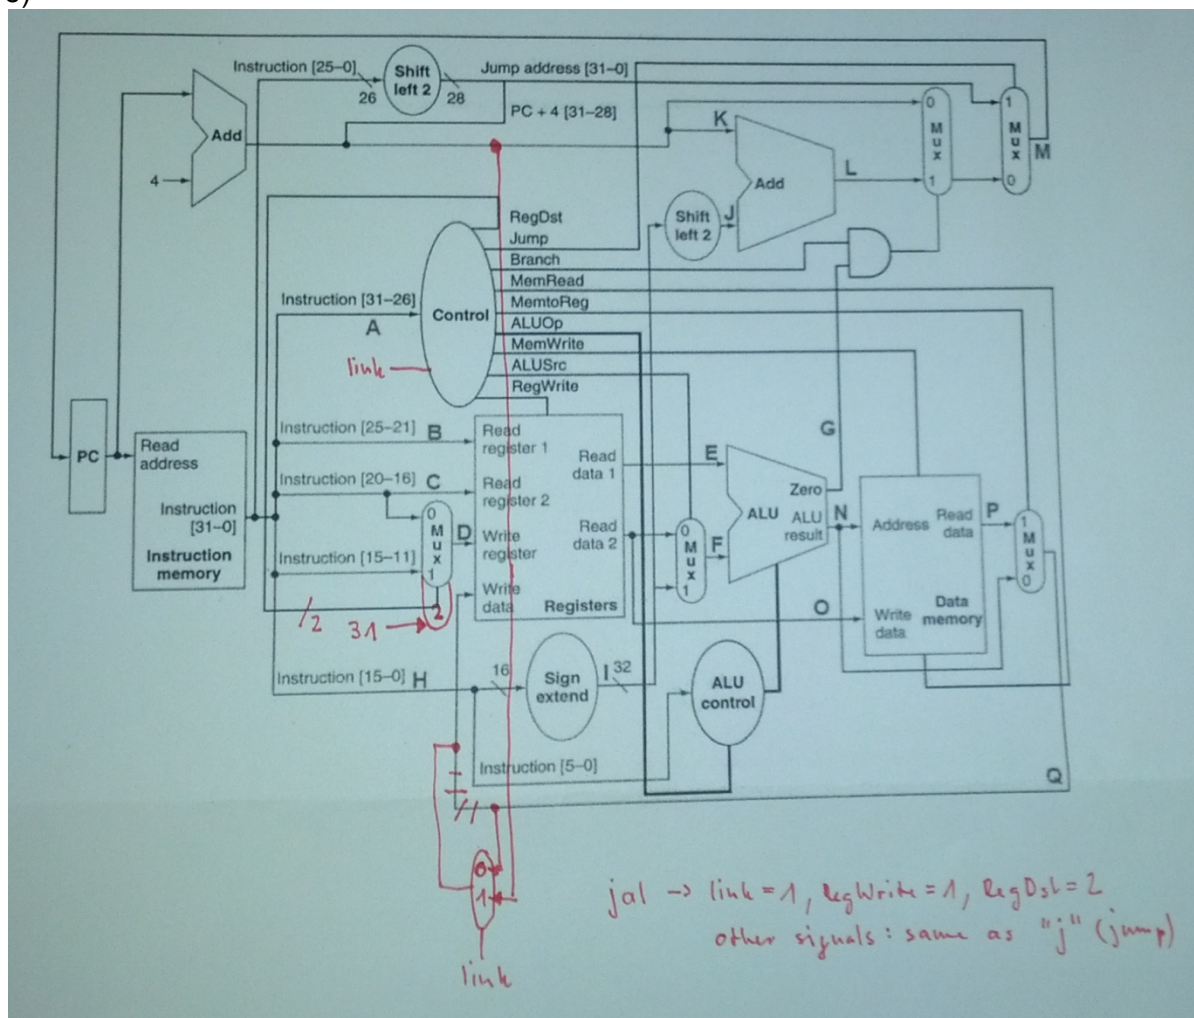 Instruction [25–0]
Shift left 2
Jump address [31–0]
26
28
PC + 4 [31–28]
Add
4
K
Add
L
0
Mux
1
1
Mux
0
M
Shift left 2
J
RegDst
Jump
Branch
MemRead
MemtoReg
ALUOp
MemWrite
ALUSrc
RegWrite
Instruction [31–26]
A
Control
link
PC
Read address
Instruction [31–0]
Instruction memory
Instruction [25–21] B
Instruction [20–16] C
Instruction [15–11]
0
Mux
1
2
D
/2
31
Read register 1
Read register 2
Write register
Write data
Read data 1
Read data 2
Registers
E
0
Mux
1
F
G
Zero
ALU
ALU result
N
O
Address
Read data
Write data
Data memory
P
1
Mux
0
Instruction [15–0] H
16
Sign extend
I
32
ALU control
Instruction [5–0]
Q
0
1
link
jal -> link = 1, RegWrite = 1, RegDst = 2
other signals: same as "j" (jump)